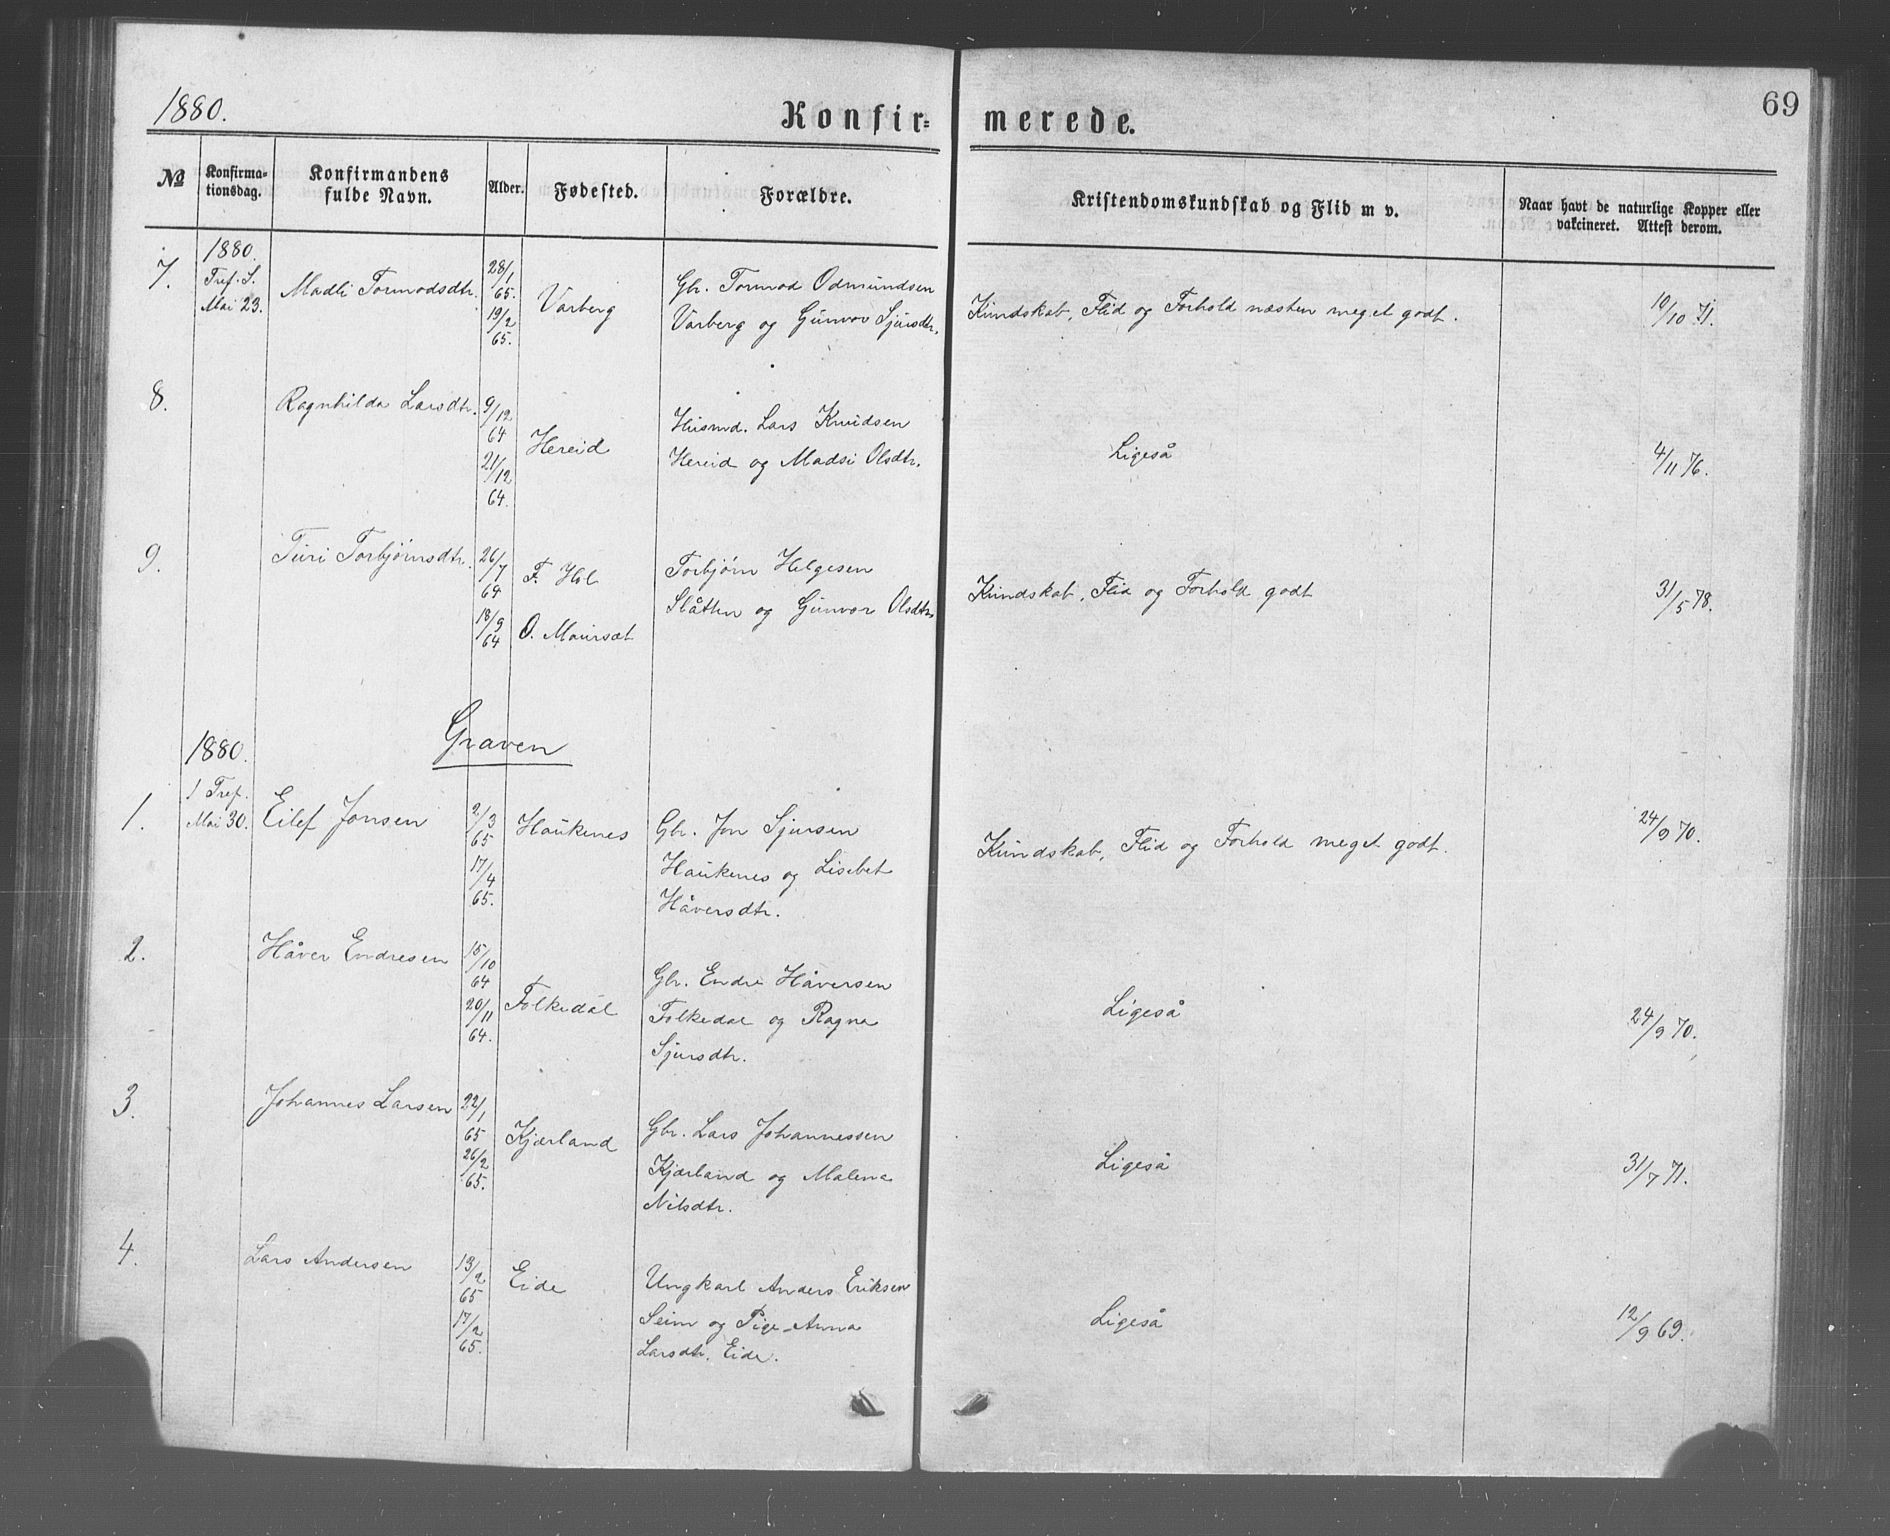 1880.
Konfir=
merede.
69
No
Konfirma-
tionsdag.
Konfirmandens
fulde Navn.
Alder.
Fødested.
Forældre.
Kristendomskundskab og Flid m v.
Naar havt de naturlige Kopper eller
vakcineret. Attest derom.
7.
1880.
Tref. S.
Mai 23.
Madli Tormodsdtr.
28/1
65.
19/2
65.
Varberg
Gbr. Tormod Odmundsen
Varberg og Gunvor Sjursdtr.
Kundskab, Flid og Forhold næsten meget godt.
10/10 71.
8.
Ragnhilda Larsdtr.
9/12
64
21/12
64.
Hereid
Husmd. Lars Knudsen
Hereid og Madsi Olsdtr.
Ligeså
4/11 76.
9.
Turi Torbjørnsdtr.
26/7
64
18/9
64
F. Hol
O. Maursæt
Torbjørn Helgesen
Slåtten og Gunvor Olsdtr.
Kundskab, Flid og Forhold godt
31/5 78.
Graven
1.
1880.
1 Tref.
Mai 30.
Eilef Jonsen
2/3
65
17/4
65.
Haukenes
Gbr. Jon Sjursen
Haukenes og Lisebet
Håversdtr.
Kundskab, Flid og Forhold meget godt.
24/9 70.
2.
Håver Endresen
15/10
64
20/11
64.
Folkedal
Gbr. Endre Håversen
Folkedal og Ragna
Sjursdtr.
Ligeså
24/9 70.
3.
Johannes Larsen
22/1
65
26/2
65.
Kjærland
Gbr. Lars Johannessen
Kjærland og Malena
Nilsdtr.
Ligeså
31/7 71.
4.
Lars Andersen
13/2
65
17/2
65.
Eide
Ungkarl Anders Eriksen
Seim og Pige Anna
Larsdtr. Eide.
Ligeså
12/9 69.